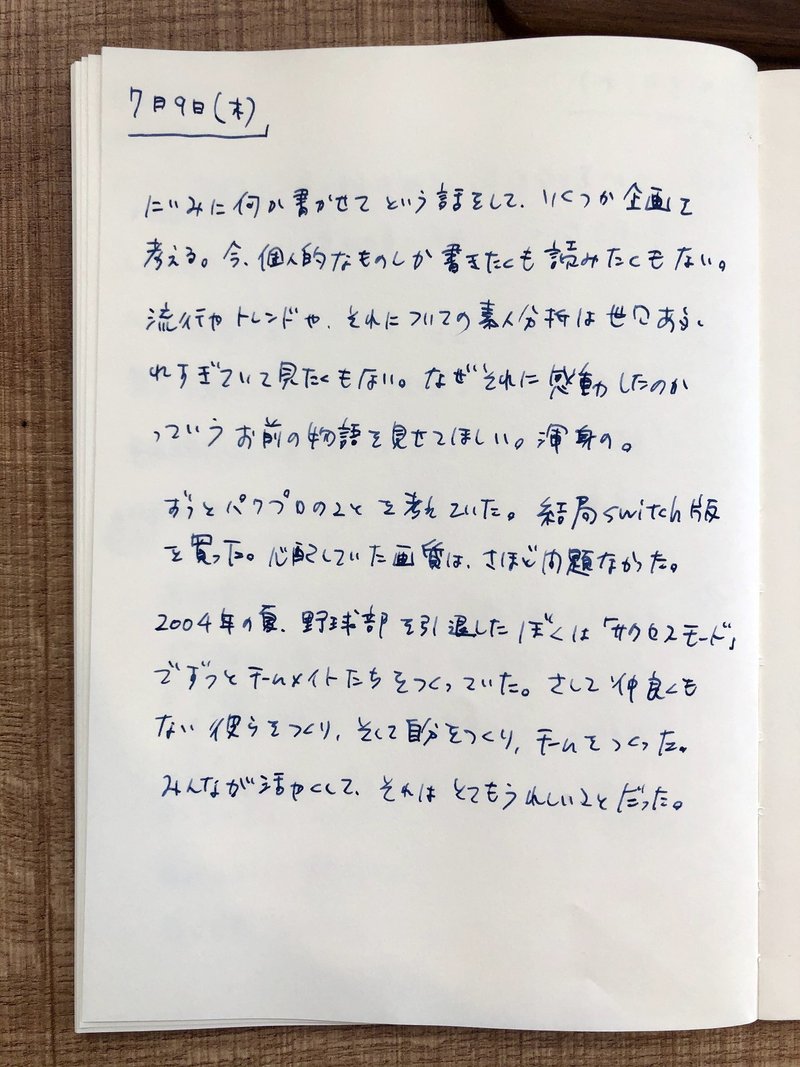 7月9日(木)
にいみに何か書かせてという話をして、いくつか企画て
考える。今、個人的なものしか書きたくも読みたくもない。
流行やトレンドや、それについての素人分析は世にあふ
れすぎていて見たくもない。なぜそれに感動したのか
っていうお前の物語を見せてほしい。渾身の。
ずっとパワプロのことを考えていた。結局switch版
を買った。心配していた画質は、さほど問題なかった。
2004年の夏、野球部を引退したぼくは「サクセスモード」
でずっとチームメイトたちをつくっていた。さして仲良くも
ない彼らをつくり、そして自分をつくり、チームをつくった。
みんなが活やくして、それはとてもうれしいことだった。